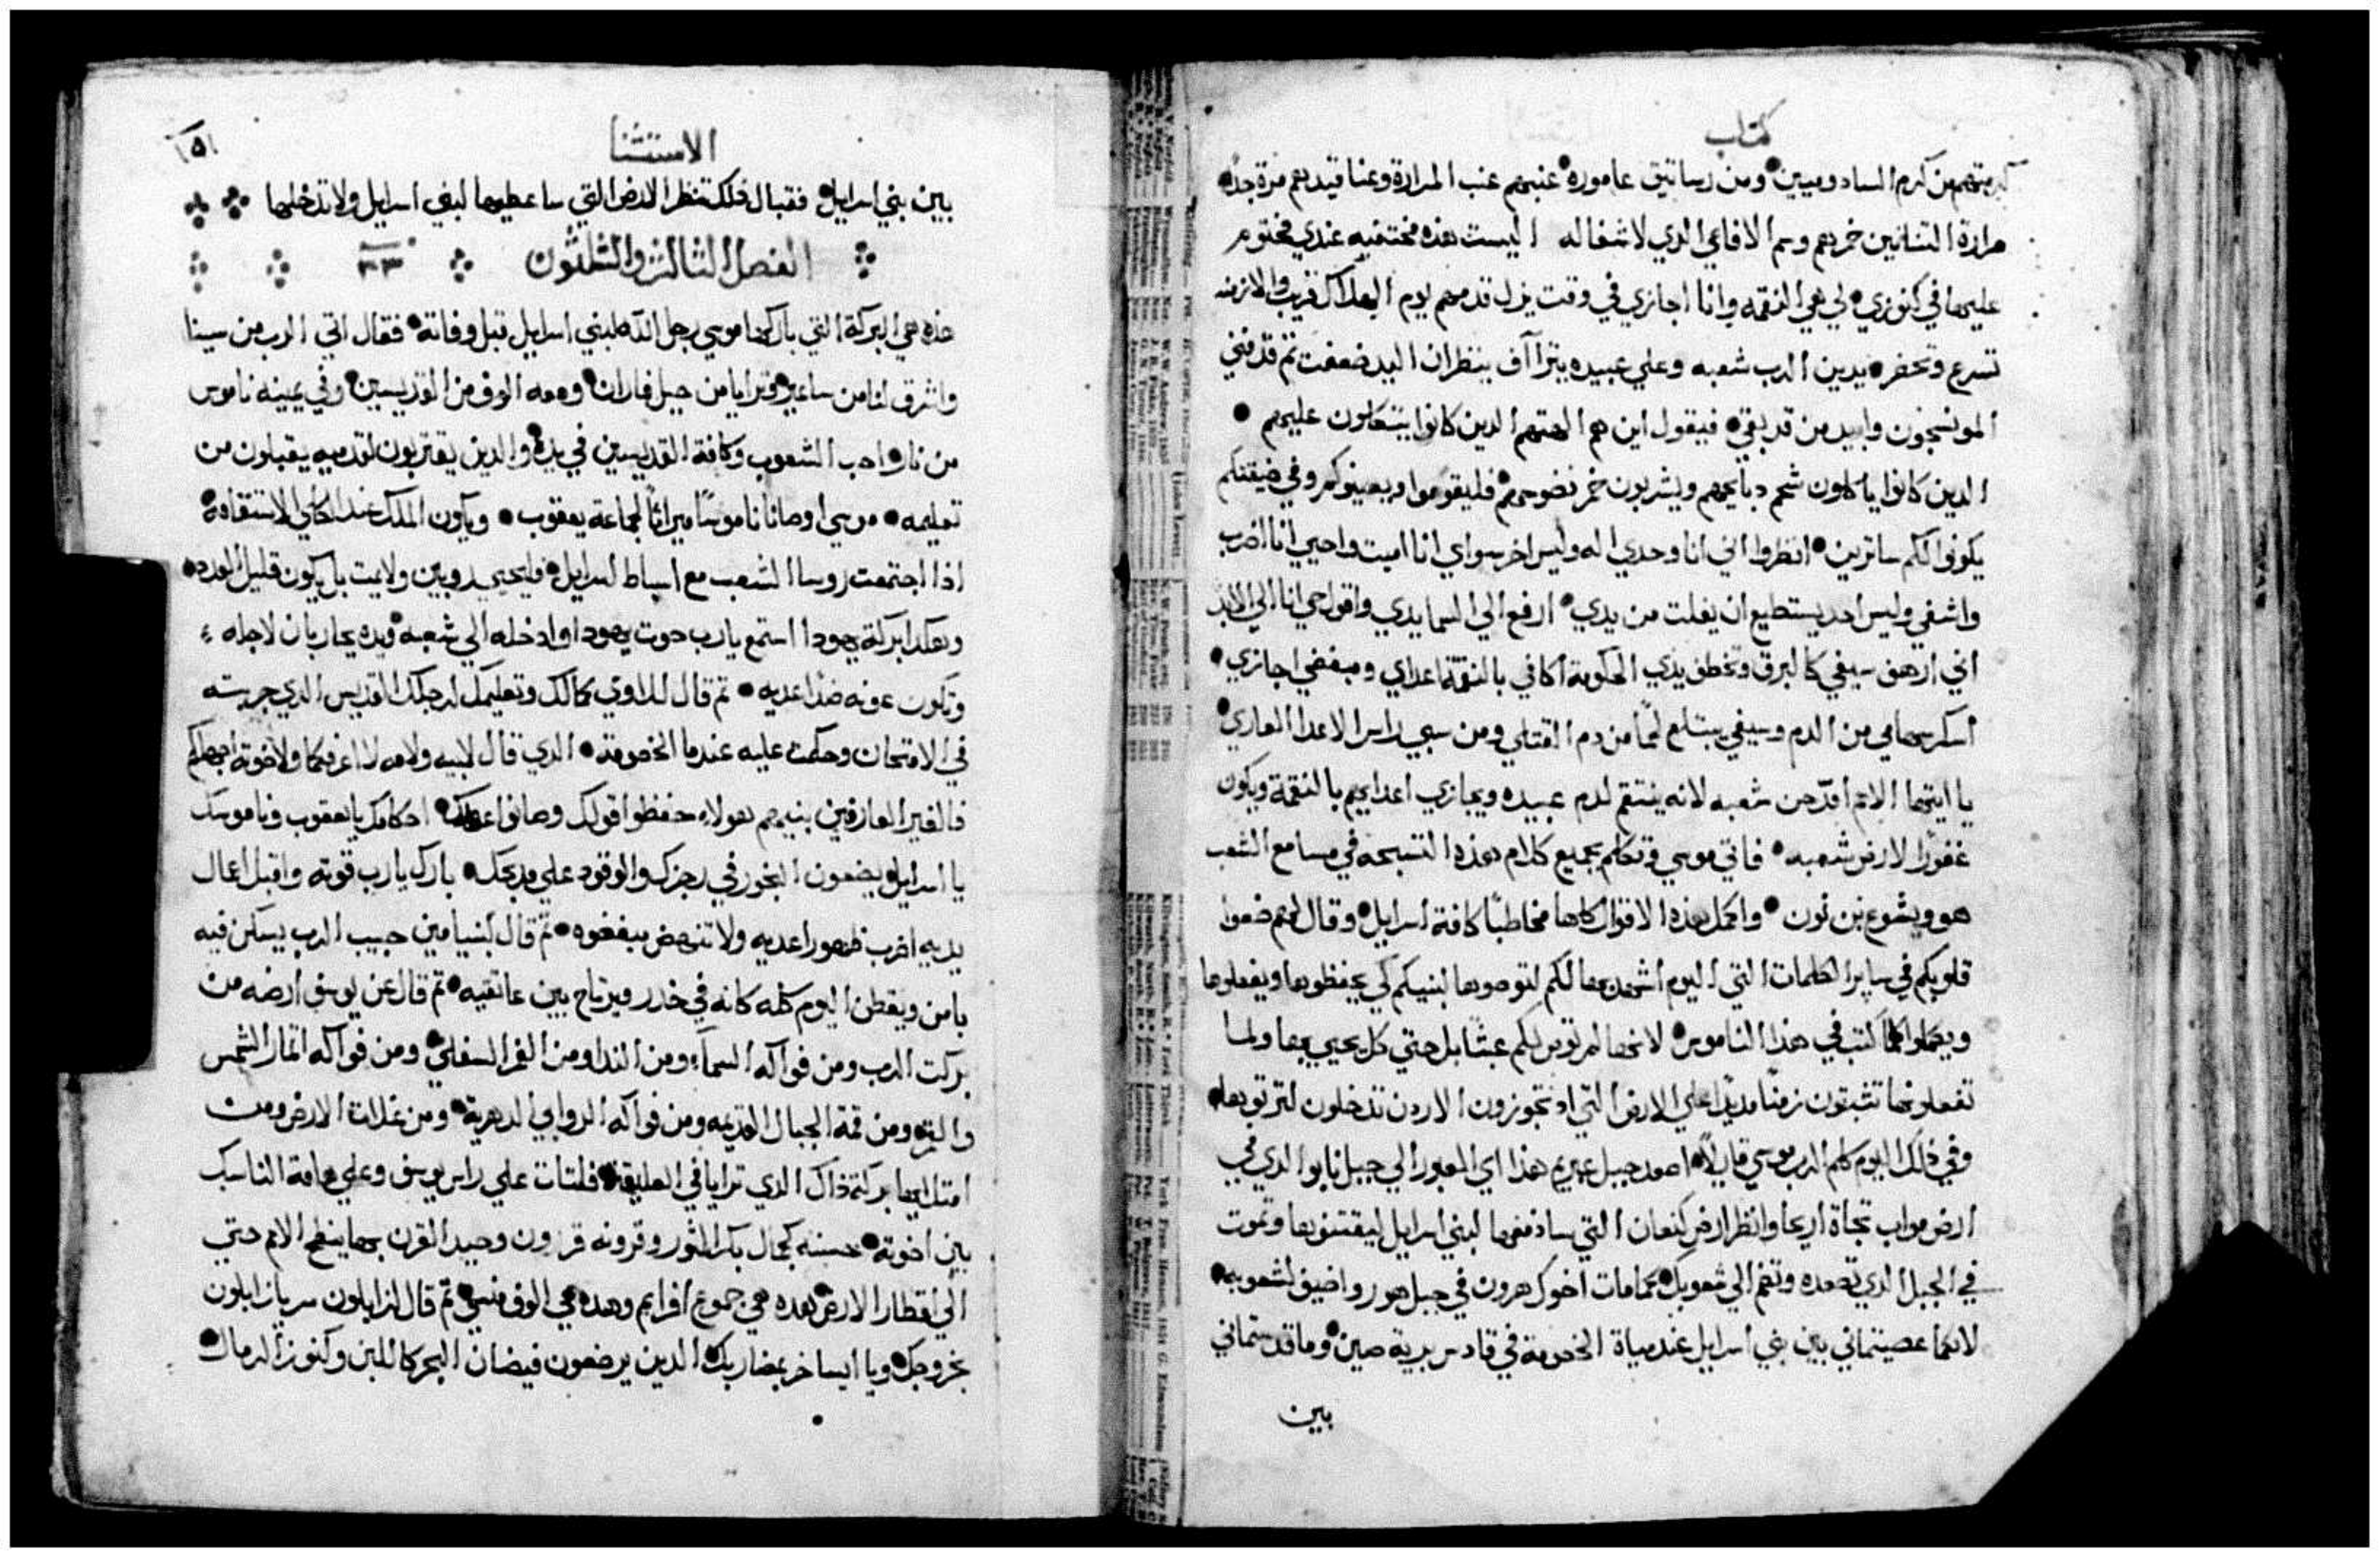 كتاب
كرمتهم من كرم السادوميين ومن رساتيق عاموره عنبهم عنب المرارة وعناقيدهم مرة جدًا
مرارة التنانين خمرهم وسم الافاعي الدي لا شفا له اليست هذه مختفيه عندي مختوم
عليها في كنوزي لي هي النقمه وانا اجازي في وقت يزل قدمهم يوم الهلاك قريب والازمنه
تسرع وتحضر يدين الرب شعبه وعلي عبيده يتراآف ينظر ان اليد ضعفت ثم قد فني
المونسجون وابيد من قد بقي فيقول اين هم الهتهم الدين كانوا يتكلون عليهم
الدين كانوا ياكلون شحم دبايحهم ويشربون خمر نضوحهم فليقوموا ويعينوكم وفي ضيقتكم
يكونوا لكم ساترين انظروا اني انا وحدي اله وليس اخر سواي انا اميت واحيي انا اضرب
واشفي وليس احد يستطيع ان يفلت من يدي ارفع الي السما يدي واقول حي انا الي الابد
اني ارهف سيفي كالبرق وتخطف يدي الحكومة اكافي بالنقمة اعداي ومبغضي اجازي
اسكر سهامي من الدم وسيفي يبتلع لحمًا من دم القتلي ومن سبي راس الاعدا العاري
يا ايتها الامم امدحن شعبه لانه ينتقم لدم عبيده ويجازي اعدايهم بالنقمة ويكون
غفورًا لارض شعبه فاتي موسي وتكلم بجميع كلام هذه التسبحه في مسامع الشعب
هو ويشوع بن نون واكمل هذه الاقوال كلها مخاطبًا كافة اسرايل وقال لهم ضعوا
قلوبكم في ساير الكلمات التي اليوم اشهدها لكم لتوصوها لبنيكم كي يحفظوها ويفعلوها
ويكملوا كلما كتب في هذا الناموس لانها لم توص لكم عبثًا بل حتي كل يحيي بها ولما
تفعلونها تثبتون زمنًا مديدًا علي الارض التي اذ تجوزون الاردن تدخلون لترتوها
وفي ذلك اليوم كلم الرب موسي قايلًا اصعد جبل عبريم هذا اي العبور الي جبل نابو الدي في
ارض مواب تجاة اريحا وانظر ارض كنعان التي سادفعها لبني اسرايل ليقتنوها وتموت
في الجبل الدي تصعده وتضم الي شعوبك كما مات اخوك هرون في جبل هور واضيف لشعوبه
لانكما عصيتماني بين بني اسرايل عند مياة الخصومة في قادس برية صين وما قدستماني
بين
الاستثنا
١٥١
بين بني اسرايل فقبالتك تنظر الارض التي ساعطيها لبني اسرايل ولا تدخلها
الفصل الثالث والثلثون ٣٣
هذه هي البركة التي باركها موسي رجل الله لبني اسرايل قبل وفاته فقال اتي الرب من سينا
واشرق لنا من ساعير وترايا من جبل فاران ومعه الوف من القديسين وفي يمينه ناموس
من نار احب الشعوب وكافة القديسين في يده والدين يقتربون لقدميه يقبلون من
تعليمه موسي اوصانا ناموسًا ميراثًا لجماعة يعقوب ويكون الملك عند الكلي الاستقامة
اذا اجتمعت روسا الشعب مع اسباط اسرايل فليحيي روبين ولا يمت بل يكون قليل العدد
وهكذا بركة يهودا استمع يارب صوت يهودا وادخله الي شعبه ويده يحاربان لاجله
وتكون عونه ضد اعديه ثم قال للاوي كمالك وتعليمك لرجلك القديس الدي جربته
في الامتحان وحكمت عليه عند ما الخصومة الدي قال لابيه ولامه لا اعرفكما ولاخوته اجهلكم
فالغير العارفين بنيهم هولاء حفظوا قولك وصانوا عهدك احكامك يا يعقوب وناموسك
يا اسرايل يضعون البخور في رجزك والوقود علي مدبحك بارك يارب قوته واقبل اعمال
يديه اضرب ظهور اعديه ولا تنهض مبغضوه ثم قال لبنيامين حبيب الرب يسكن فيه
بامن ويقطن اليوم كله كانه في خدر ويرتاح بين عاتقيه ثم قال عن يوسف ارضه من
بركت الرب ومن فواكه السماء ومن الندا ومن الغمر السفلي ومن فواكه اثمار الشمس
والقمر ومن قمة الجبال القديمه ومن فواكه الروابي الدهرية ومن غلات الارض ومن
امتلايها بركة ذاك الدي ترايا في العليقة فلتات علي راس يوسف وعلي هامة الناسك
بين اخوته حسنه كجمال بكر الثور وقرونه قرون وحيد القرن بها ينطح الامم حتي
الي اقطار الارض هده هي جموع افرايم وهده هي الوف منسي ثم قال لزابلون سر يا زابلون
بخروجك ويا ايساخر بمضاربك الدين يرضعون فيضان البحر كاللبن وكنوز الرمال